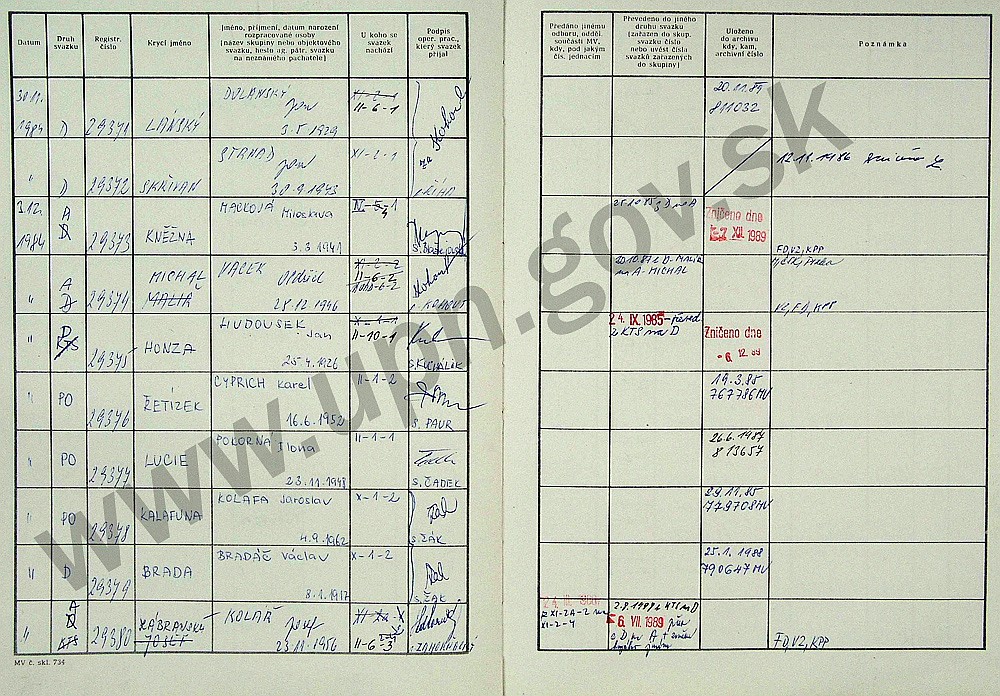 Datum
Druh svazku
Registr. číslo
Krycí jméno
Jméno, příjmení, datum narození
rozpracované osoby
(název skupiny nebo objektového
svazku, heslo ag. pátr. svazku
na neznámého pachatele)
U koho se
svazek
nachází
Podpis
oper. prac.,
který svazek
přijal
Předáno jinému
odboru, odděl.
součásti MV,
kdy, pod jakým
čís. jednacím
Převedeno do jiného
druhu svazku
(zařazen do skup.
svazku číslo
nebo uvést čísla
svazků zařazených
do skupiny)
Uloženo
do archivu
kdy, kam,
archivní číslo
Poznámka
30.11. DOLANSKÝ XI-2-1 20.11.89
Josef II-6-1 811032
1984 D 29371 LÁNSKÝ 3.5.1929 za Kohout
STRNAD XI-2-1 12.11.1986
Josef
" D 29372 SKŘIVAN 30.9.1943 s. ŘÍHA
3.12. A MACKOVÁ Miloslava 25.10.85 z D na A Zničeno dne
1984 D 29373 KNĚŽNA 3.3.1941 XII. 1989
FD, VZ, KPP
MICHAL VACEK Oldřich XI-2-2 z D-MALÍŘ
A II-6-2 na A-MICHAL
" D 29374 MALÍŘ 28.12.1946 s. KOHOUT
D HUDOUSEK X-1-1 24. IX. 1985 - převed
" KTS Jan II-10-1 z KTS na D Zničeno dne
29375 HONZA 25.4.1926 s. KUCHÁLIK -6. 12. 89
CYPRICH Karel II-1-2 19.3.85
" PO 29376 ŘETÍZEK 767786 MV
16.6.1952 s. PAUR
POKORNÁ Ilona II-1-1 26.6.1987
" PO 29377 LUCIE 813657
23.11.1948 s. ČADEK
KOLAFA Jaroslav X-1-2 29.11.85
" PO 29378 KALAFUNA 779708 MV
4.9.1962 s. ŽÁK
BRADÁČ Václav X-1-2 25.1.1988
" D 29379 BRADA 790647 MV
8.1.1917 s. ŽÁK
A
D ZÁBRANSKÝ KOLÁŘ Josef
" KTS 29380 JOSEF 23.11.1956 II-6-3
XI-2A-2 na
XI-2-4
2.8.1988 z KTS na D
6. VII. 1989
z D na A
FD, VZ, KPP
MV č. skl. 734
www.upn.gov.sk